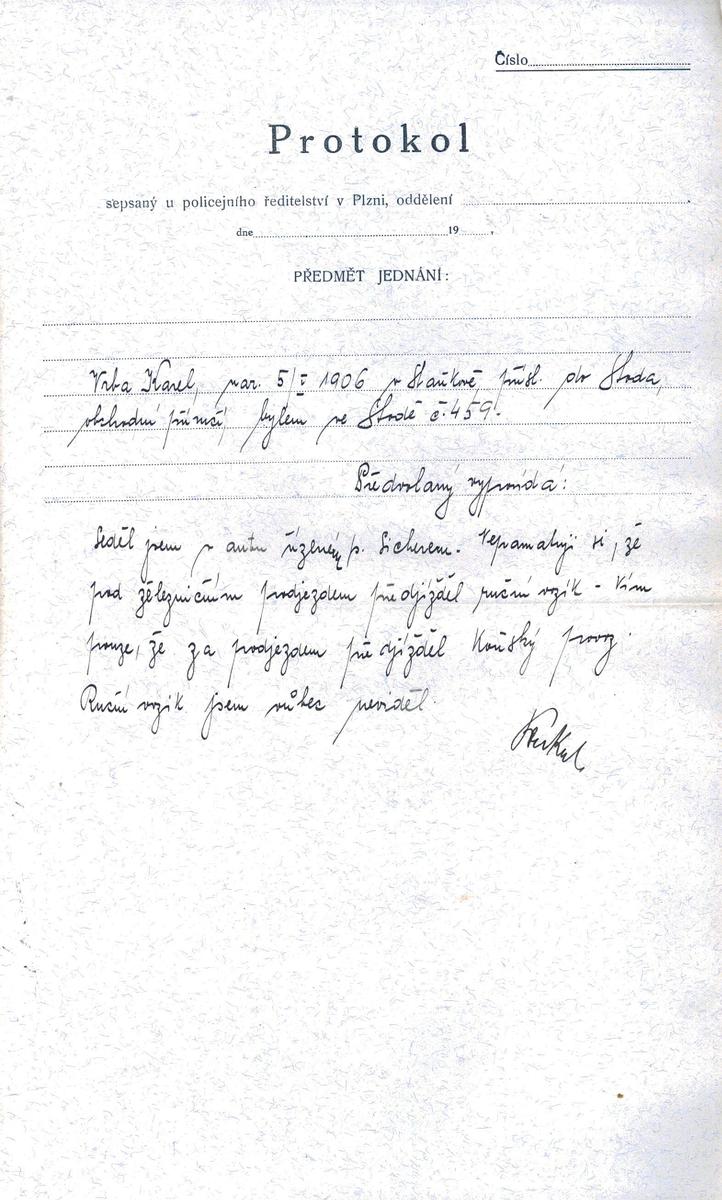 Číslo
Protokol
sepsaný u policejního ředitelství v Plzni, oddělení
dne 19 ,
PŘEDMĚT JEDNÁNÍ:
Vrba Karel, nar. 5/I 1906 v Staňkově, přísl. do Stoda,
obchodní příručí, bytem ve Stodě č. 459.
Předvolaný vypovídá:
Seděl jsem v autu řízeném p. Sicherem. Nepamatuji si, že
pod železničním podjezdem předjížděl ruční vozík – Vím
pouze, že za podjezdem předjížděl koňský povoz.
Ruční vozík jsem vůbec neviděl.